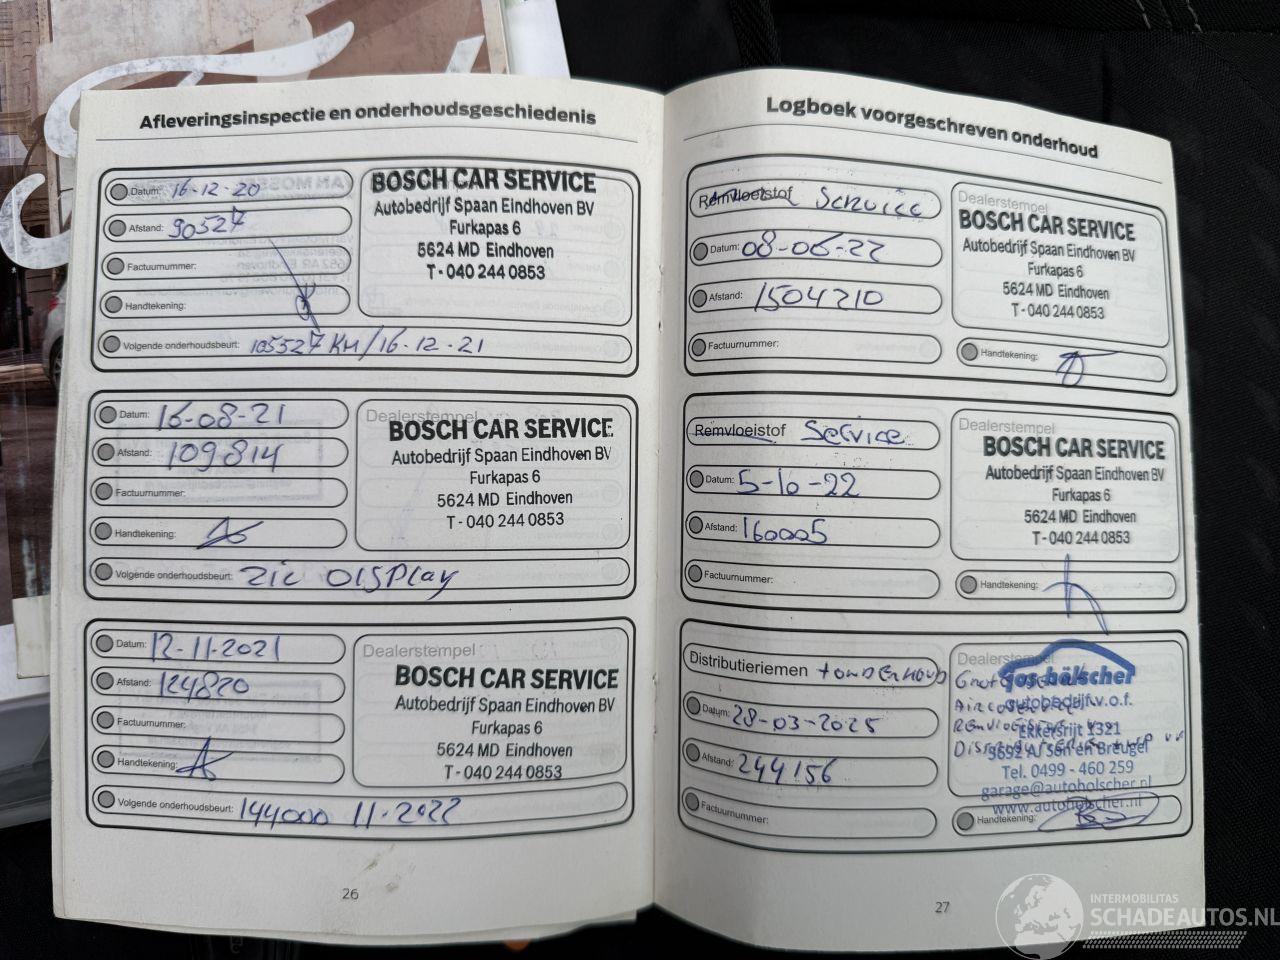 Afleveringsinspectie en onderhoudsgeschiedenis
Datum: 16-12-20
Afstand: 90527
Factuurnummer:
Handtekening:
Volgende onderhoudsbeurt: 105527 KM/16-12-21
BOSCH CAR SERVICE
Autobedrijf Spaan Eindhoven BV
Furkapas 6
5624 MD Eindhoven
T - 040 244 0853
Datum: 16-08-21
Afstand: 109814
Factuurnummer:
Handtekening:
Volgende onderhoudsbeurt: Zie DISPlay
Dealerstempel
BOSCH CAR SERVICE
Autobedrijf Spaan Eindhoven BV
Furkapas 6
5624 MD Eindhoven
T - 040 244 0853
Datum: 12-11-2021
Afstand: 124820
Factuurnummer:
Handtekening:
Volgende onderhoudsbeurt: 144000 11-2022
Dealerstempel
BOSCH CAR SERVICE
Autobedrijf Spaan Eindhoven BV
Furkapas 6
5624 MD Eindhoven
T - 040 244 0853
26
Logboek voorgeschreven onderhoud
Remvloeistof Service
Datum: 08-06-22
Afstand: 1504210
Factuurnummer:
Dealerstempel
BOSCH CAR SERVICE
Autobedrijf Spaan Eindhoven BV
Furkapas 6
5624 MD Eindhoven
T - 040 244 0853
Handtekening:
Remvloeistof Service
Datum: 5-10-22
Afstand: 160005
Factuurnummer:
Dealerstempel
BOSCH CAR SERVICE
Autobedrijf Spaan Eindhoven BV
Furkapas 6
5624 MD Eindhoven
T - 040 244 0853
Handtekening:
Distributieriemen + ONDERHOUD
Datum: 28-03-2025
Afstand: 244156
Factuurnummer:
Dealerstempel
jos hölscher
autobedrijf v.o.f.
Ekkersrijt 1321
5692 AJ Son en Breugel
Tel. 0499 - 460 259
garage@autoholscher.nl
www.autoholscher.nl
Handtekening:
27
INTERMOBILITAS
SCHADEAUTOS.NL